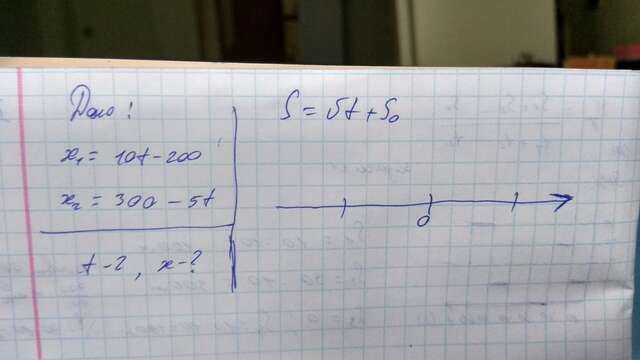 Дано:
x₁ = 10t - 200
x₂ = 300 - 5t
t - ?, x - ?
S = υt + S₀
0